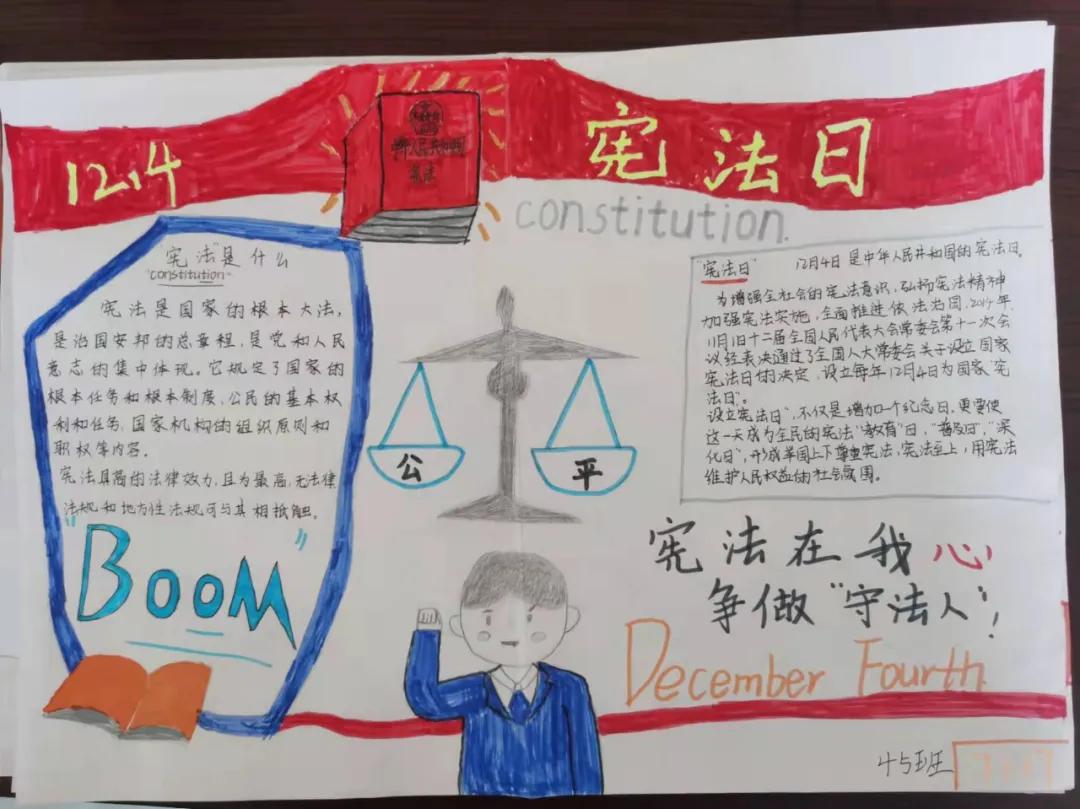 12.4
中华人民共和国
宪法
宪法日
constitution.
"宪法"是什么
"constitution"
宪法是国家的根本大法,
是治国安邦的总章程,是党和人民
意志的集中体现。它规定了国家的
根本任务和根本制度、公民的基本权
利和任务、国家机构的组织原则和
职权等内容。
宪法具高的法律效力,且为最高,无法律
法规和地方性法规可与其相抵触。
"BOOM"
公 平
"宪法日" 12月4日是中华人民共和国的宪法日。
为增强全社会的宪法意识,弘扬宪法精神
加强宪法实施,全面推进依法治国,2014年
11月1日十二届全国人民代表大会常委会第十一次会
议经表决通过了全国人大常委会关于设立国家
宪法日的决定,设立每年12月4日为国家"宪
法日"。
设立宪法日",不仅是增加一个纪念日,更要使
这一天成为全民的宪法"教育"日,"普及日","深
化日",形成举国上下尊重宪法,宪法至上,用宪法
维护人民权益的社会氛围。
宪法在我心
争做"守法人"!
December Fourth
45班